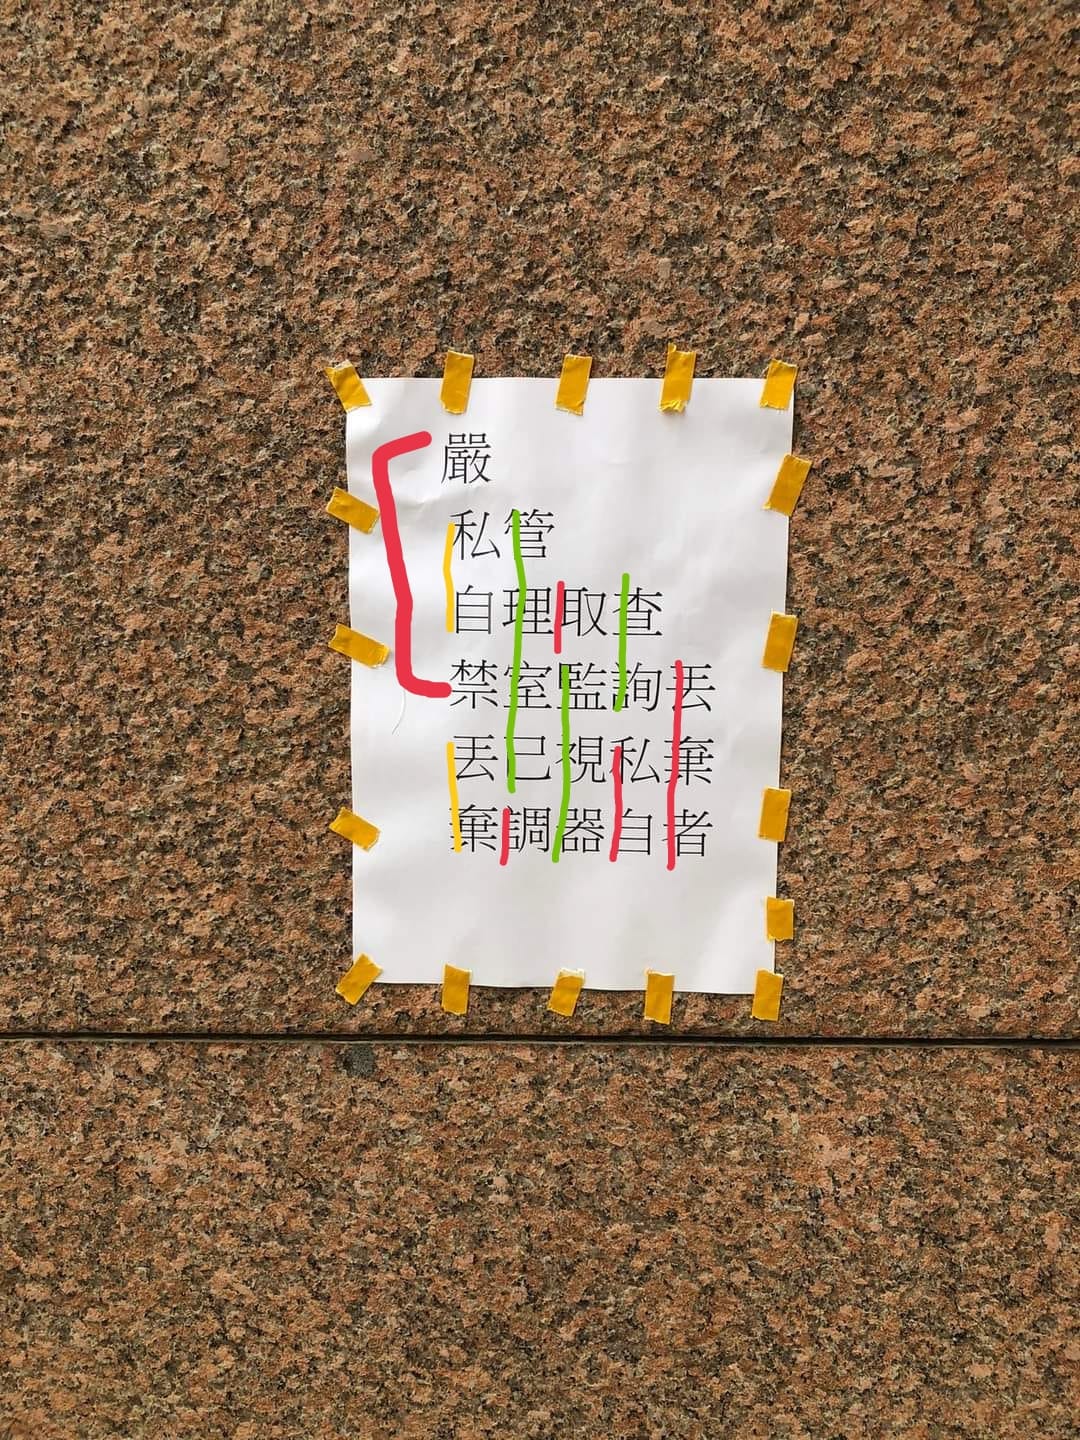 嚴
私管
自理取查
禁室監詢丟
丟已視私棄
棄調器自者